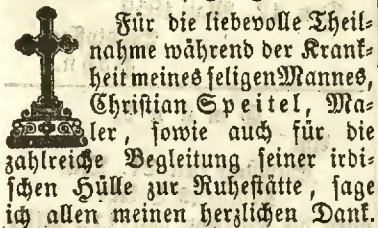 Für die liebevolle Theil-
nahme während der Krank-
heit meines seligen Mannes,
Christian Speitel, Ma-
ler, sowie auch für die
zahlreiche Begleitung seiner irdi-
schen Hülle zur Ruhestätte, sage
ich allen meinen herzlichen Dank.